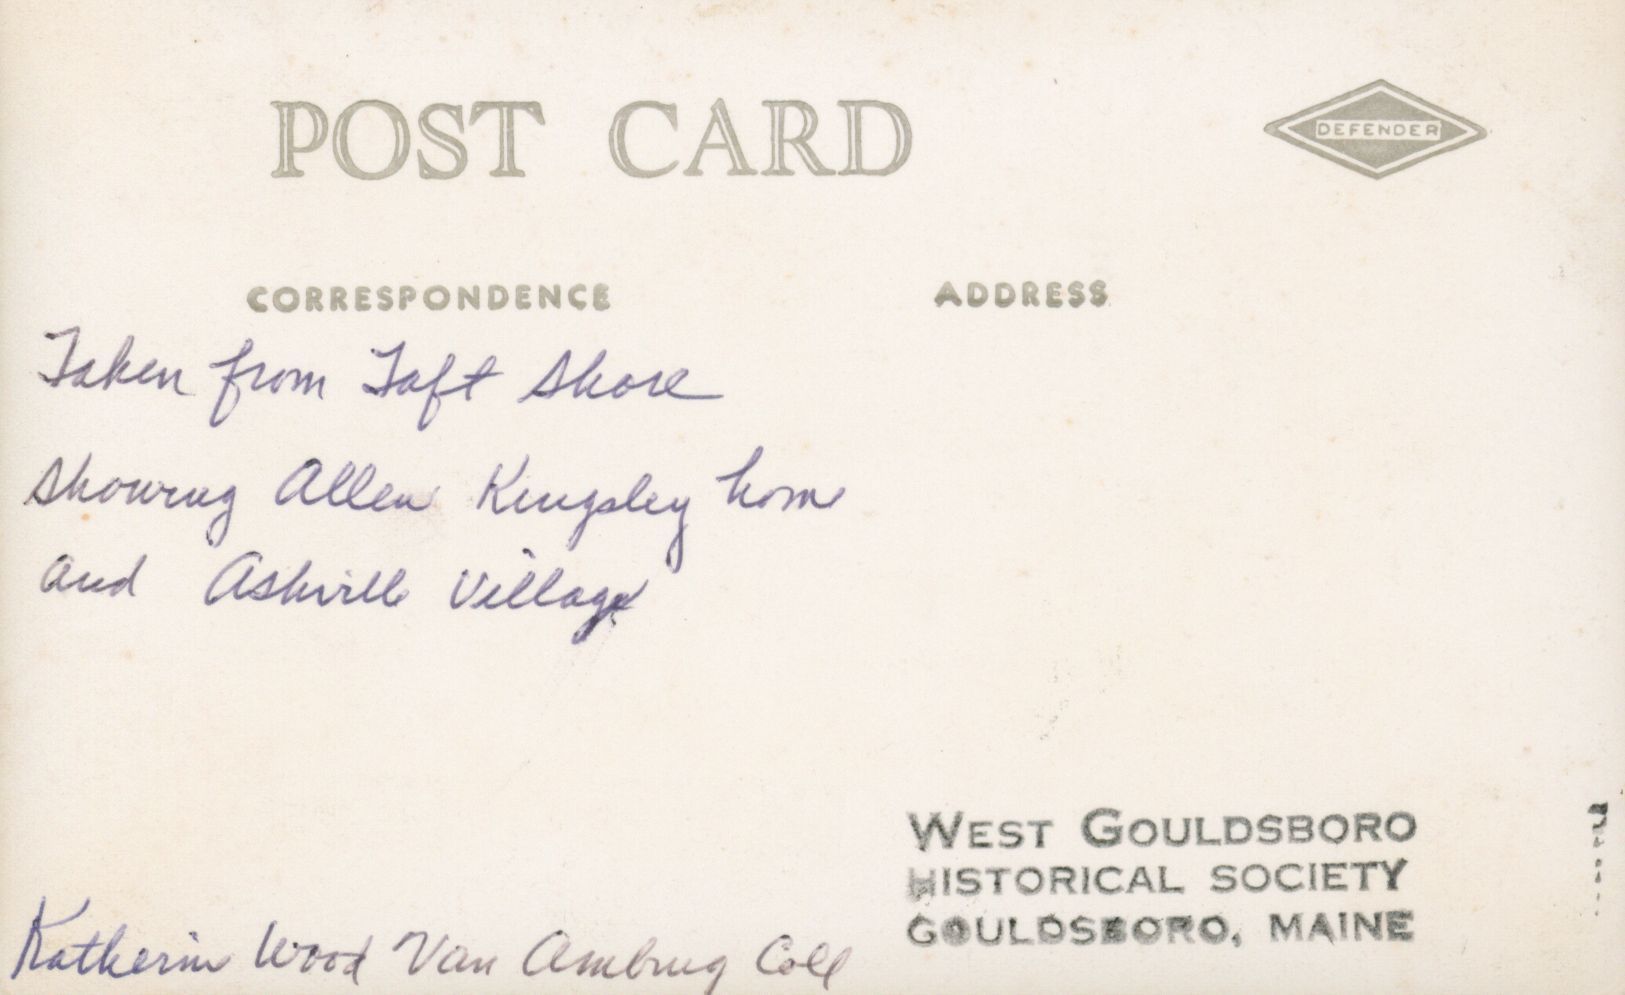 POST CARD
DEFENDER
CORRESPONDENCE
ADDRESS
Taken from Taft Shore
showing Allen Kingsley home
and Ashville Village
WEST GOULDSBORO
HISTORICAL SOCIETY
GOULDSBORO, MAINE
Katherine Wood Van Ambrug Coll